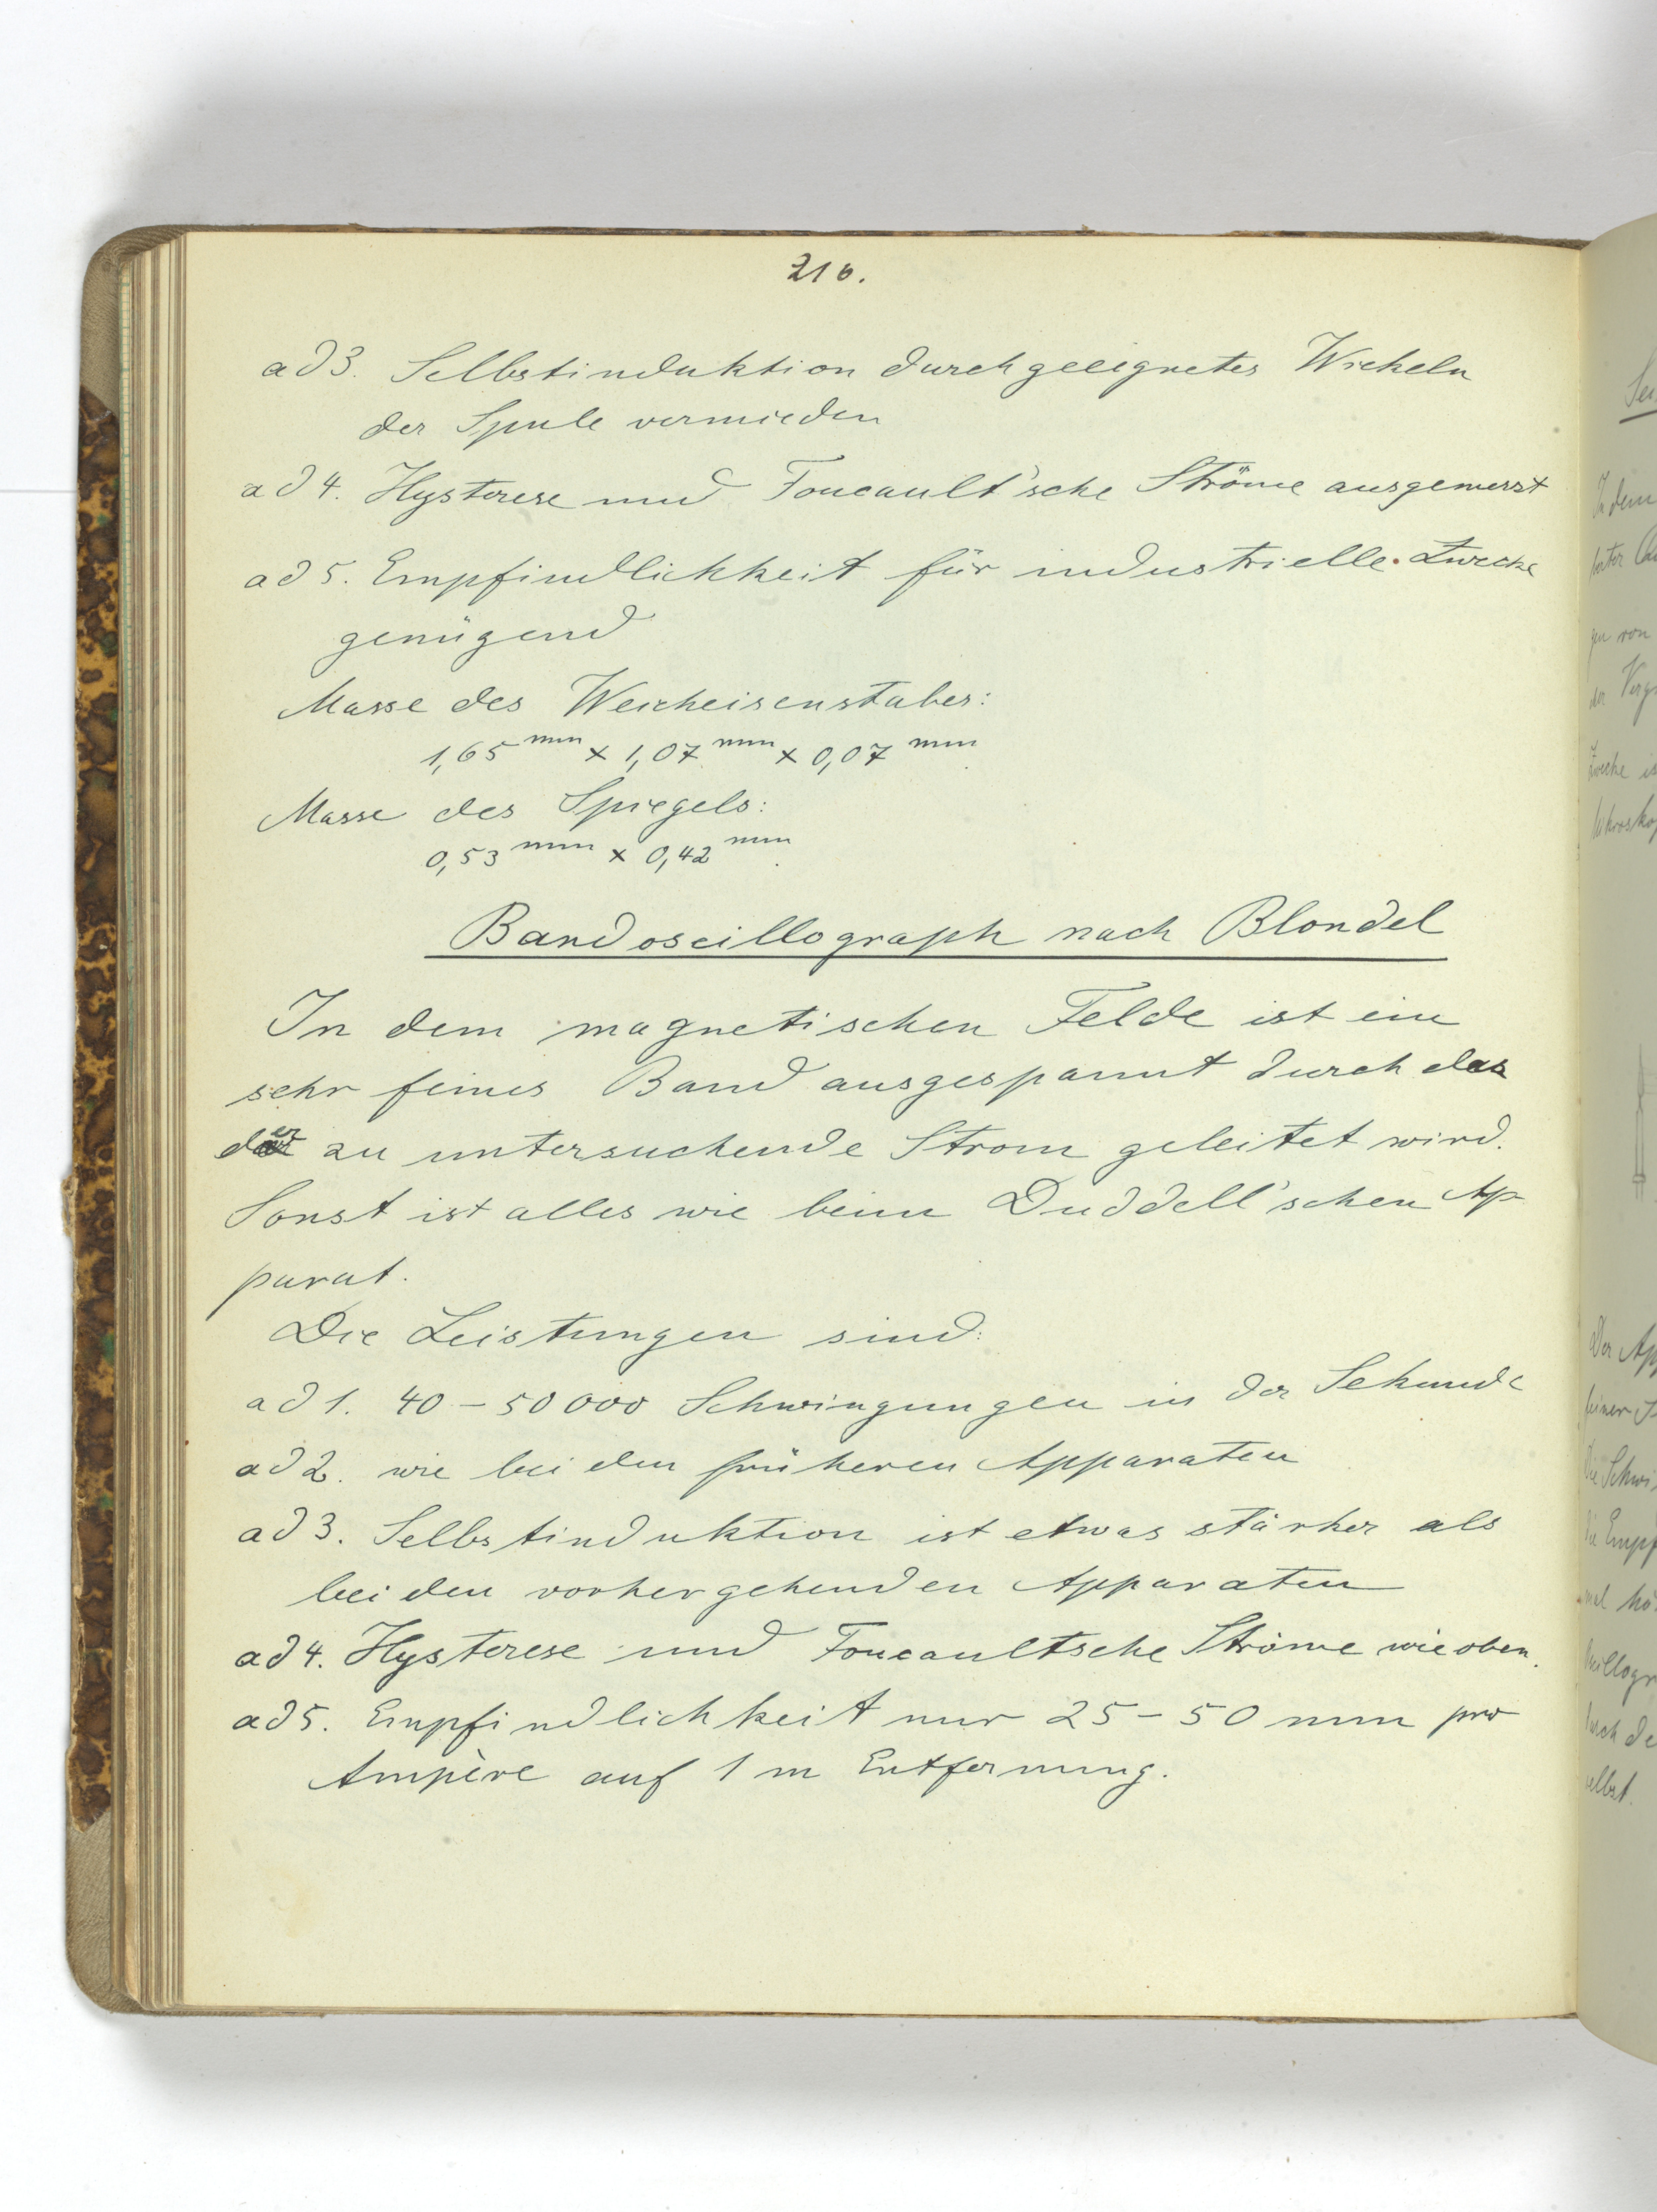 216.
ad 3. Selbstinduktion durch geeignetes Wickeln
der Spule vermieden
ad 4. Hysterese und Foucault'sche Ströme ausgemerzt
ad 5. Empfindlichkeit für industrielle Zwecke
genügend
Masse des Weicheisenstabes:
1,65 mm x 1,07 mm x 0,07 mm
Masse des Spiegels:
0,53 mm x 0,42 mm
Bandoscillograph nach Blondel
In dem magnetischen Felde ist ein
sehr feines Band ausgespannt durch das
der zu untersuchende Strom geleitet wird.
Sonst ist alles wie beim Duddell'schen Ap
parat.
Die Leistungen sind:
ad 1. 40 – 50 000 Schwingungen in der Sekunde
ad 2. wie bei den früheren Apparaten
ad 3. Selbstinduktion ist etwas stärker als
bei den vorhergehenden Apparaten
ad 4. Hysterese und Foucaultsche Ströme wie oben.
ad 5. Empfindlichkeit nur 25 – 50 mm pro
Ampère auf 1 m Entfernung.